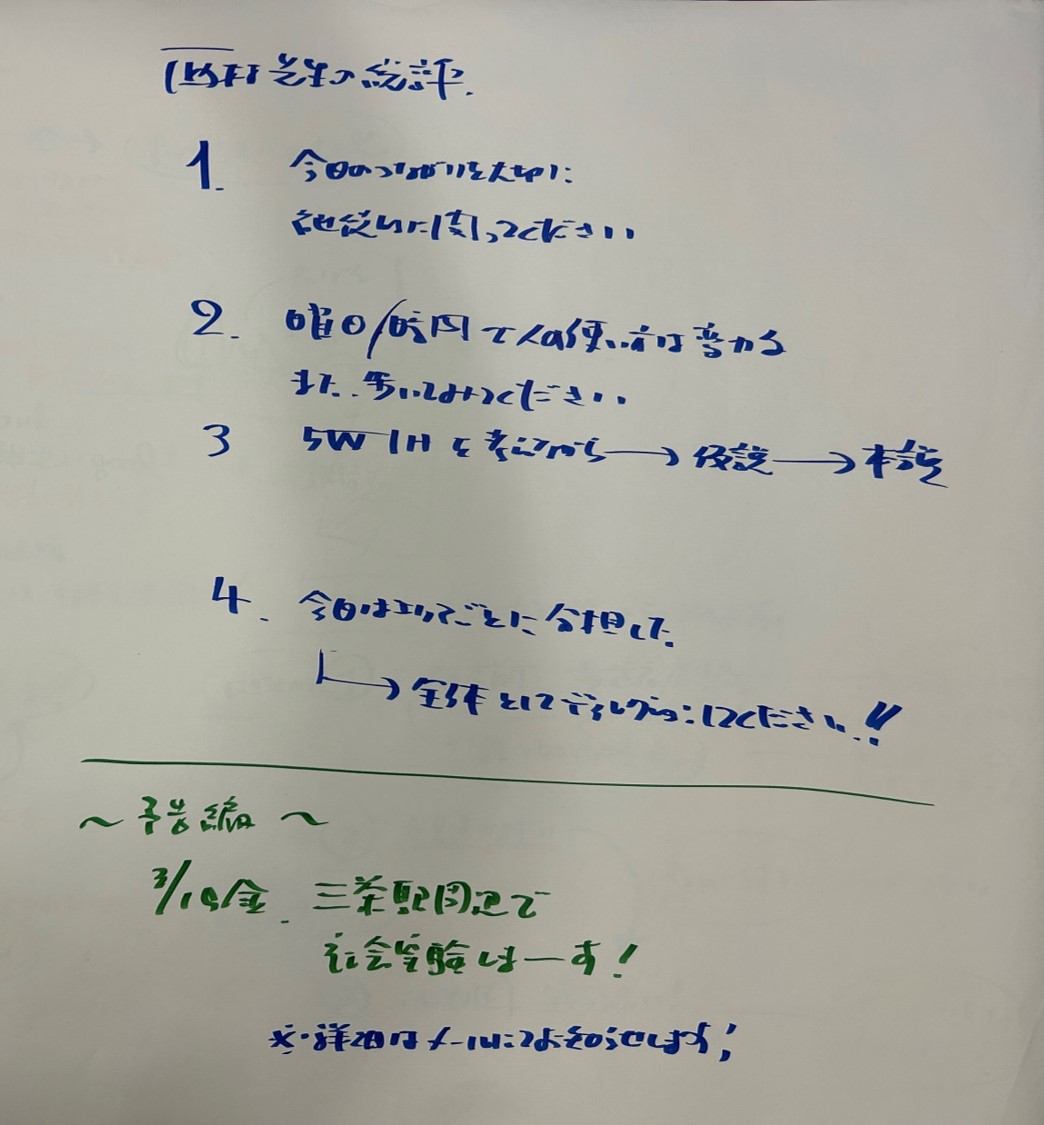 西村先生の総評
1. 今日のつながりを大切に
地従いに関ってください
2. 曜日/時間で人の使い方は変わる
また、歩いてみてください
3 5W1Hを考えながら→仮説→本説
4. 今日はエリアごとに分担した
→全体としてディレクションしてください!!
～予告編～
金. 三茶駅周辺で
社会実験しまーす!
※詳細はメールにてお知らせします!